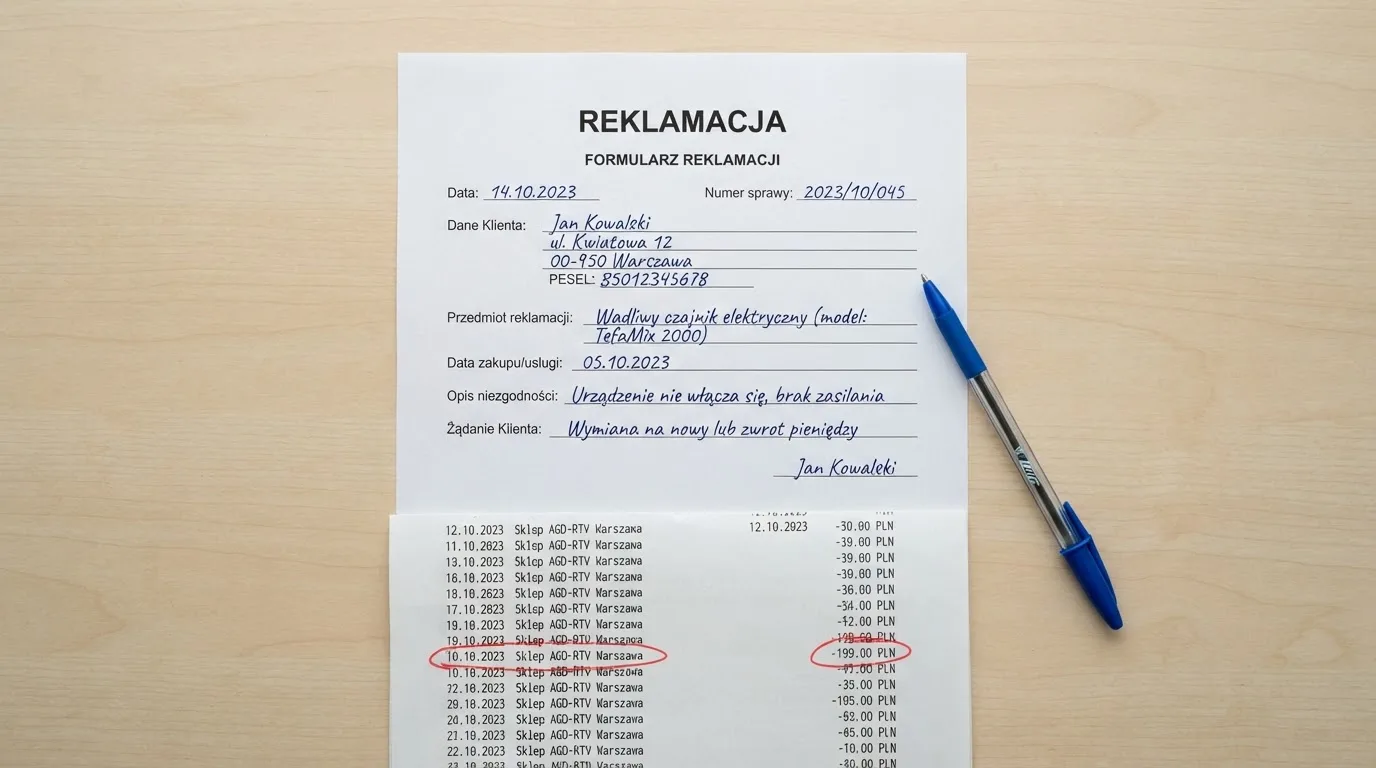 REKLAMACJA
FORMULARZ REKLAMACJI
Data: 14.10.2023 Numer sprawy: 2023/10/045
Dane Klienta: Jan Kowalski
ul. Kwiatowa 12
00-950 Warczawa
PESEL: 85012345678
Przedmiot reklamacji: Wadliwy czajnik elektryczny (model:
TefaMix 2000)
Data zakupu/uslugi: 05.10.2023
Opis niezgodności: Urządzenie nie włącza się, brak zasilania
Żądanie Klienta: Wymiana na nowy lub zwrot pieniędzy
Jan Kowaleki
12.10.2023 Sklsp AGD-RTV Warszawa 12.10.2023 -30.00 PLN
11.10.2023 Sklcp AGD-RTV Warszawa -39.00 PLN
13.10.2023 Sklcp AGD-RTV Warszawa -39.00 PLN
18.10.2023 Sklcp AGD-RTV Warszawa -39.00 PLN
18.10.2023 Sklsp AGD-RTV Warszawa -36.00 PLN
17.10.2023 Sklsp AGD-RTV Warszawa -34.00 PLN
19.10.2023 Sklep AGD-RTV Warszawa PLN
19.10.2023 Sklep PLN
10.10.2023 Sklep AGD-RTV Narszawa -199.00 PLN
10.10.2023 Sklep PLN
22.10.2023 Sklep AGD-RTV Warszawa -35.00 PLN
29.10.2023 Sklep AGD-RTV Warszawa -105.00 PLN
20.10.2023 Sklep AGD-RTV Warszawa PLN
21.10.2023 Sklep AGD-RTV Warszawa -65.00 PLN
22.10.2023 Sklep AGD-RTV Warszawa -10.00 PLN